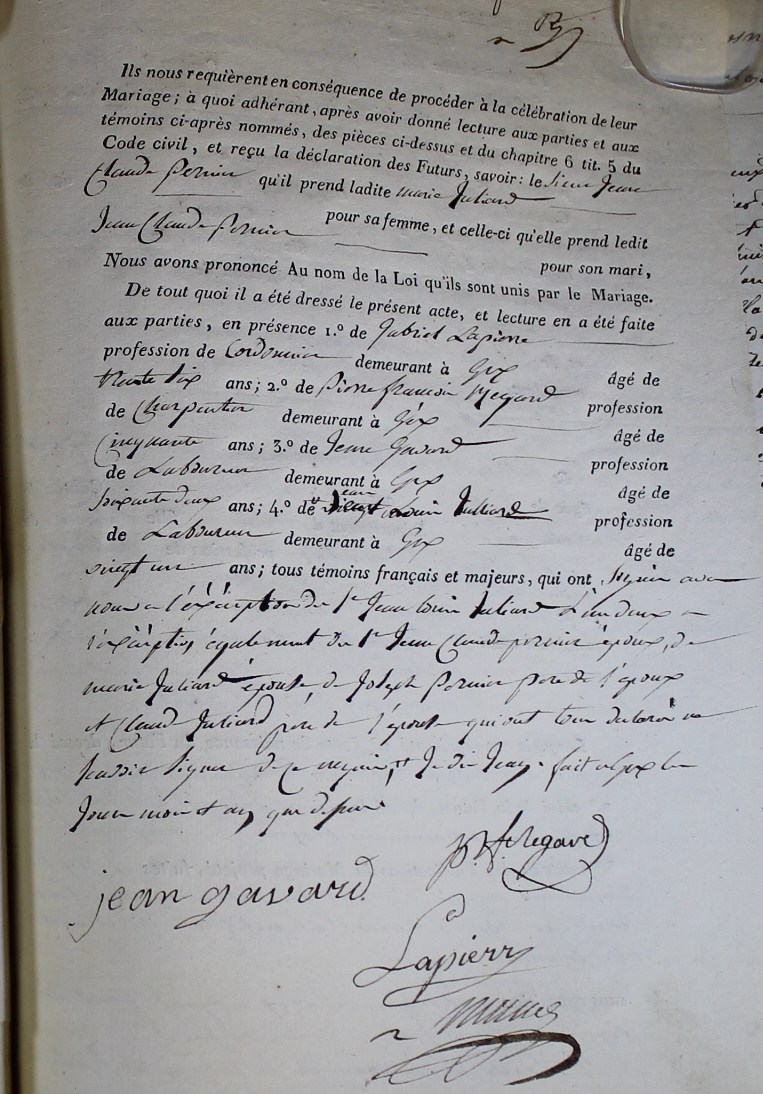 Ils nous requièrent en conséquence de procéder à la célébration de leur
Mariage; à quoi adhérant, après avoir donné lecture aux parties et aux
témoins ci-après nommés, des pièces ci-dessus et du chapitre 6 tit. 5 du
Code civil, et reçu la déclaration des Futurs, savoir: le sieur Jean
Claude Pernier qu'il prend ladite marie Juliard
pour sa femme, et celle-ci qu'elle prend ledit
Jean Claude Pernier pour son mari,
Nous avons prononcé Au nom de la Loi qu'ils sont unis par le Mariage.
De tout quoi il a été dressé le présent acte, et lecture en a été faite
aux parties, en présence 1.º de Gabriel Lapierre
profession de Cordonnier demeurant à Gex âgé de
trente six ans; 2.º de Pierre françois profession
de Charpentier demeurant à Gex âgé de
Cinquante ans; 3.º de Jean Gavard profession
de Laboureur demeurant à Gex âgé de
soixante deux ans; 4.º de Jean Louis Julliard profession
de Laboureur demeurant à Gex âgé de
vingt un ans; tous témoins français et majeurs, qui ont signé avec
nous a l'exception du Sr Jean Louis Juliard
l'exception également du Sr Jean Claude pernier époux, de
marie Juliard épouse, de Joseph Pernier pere de l'époux
et Claude Juliard père de l'épouse qui ont tous déclaré ne
scavoir signer de ce requis, fait a Gex les
Jour mois et an que dessus
jean gavard
Lapierre